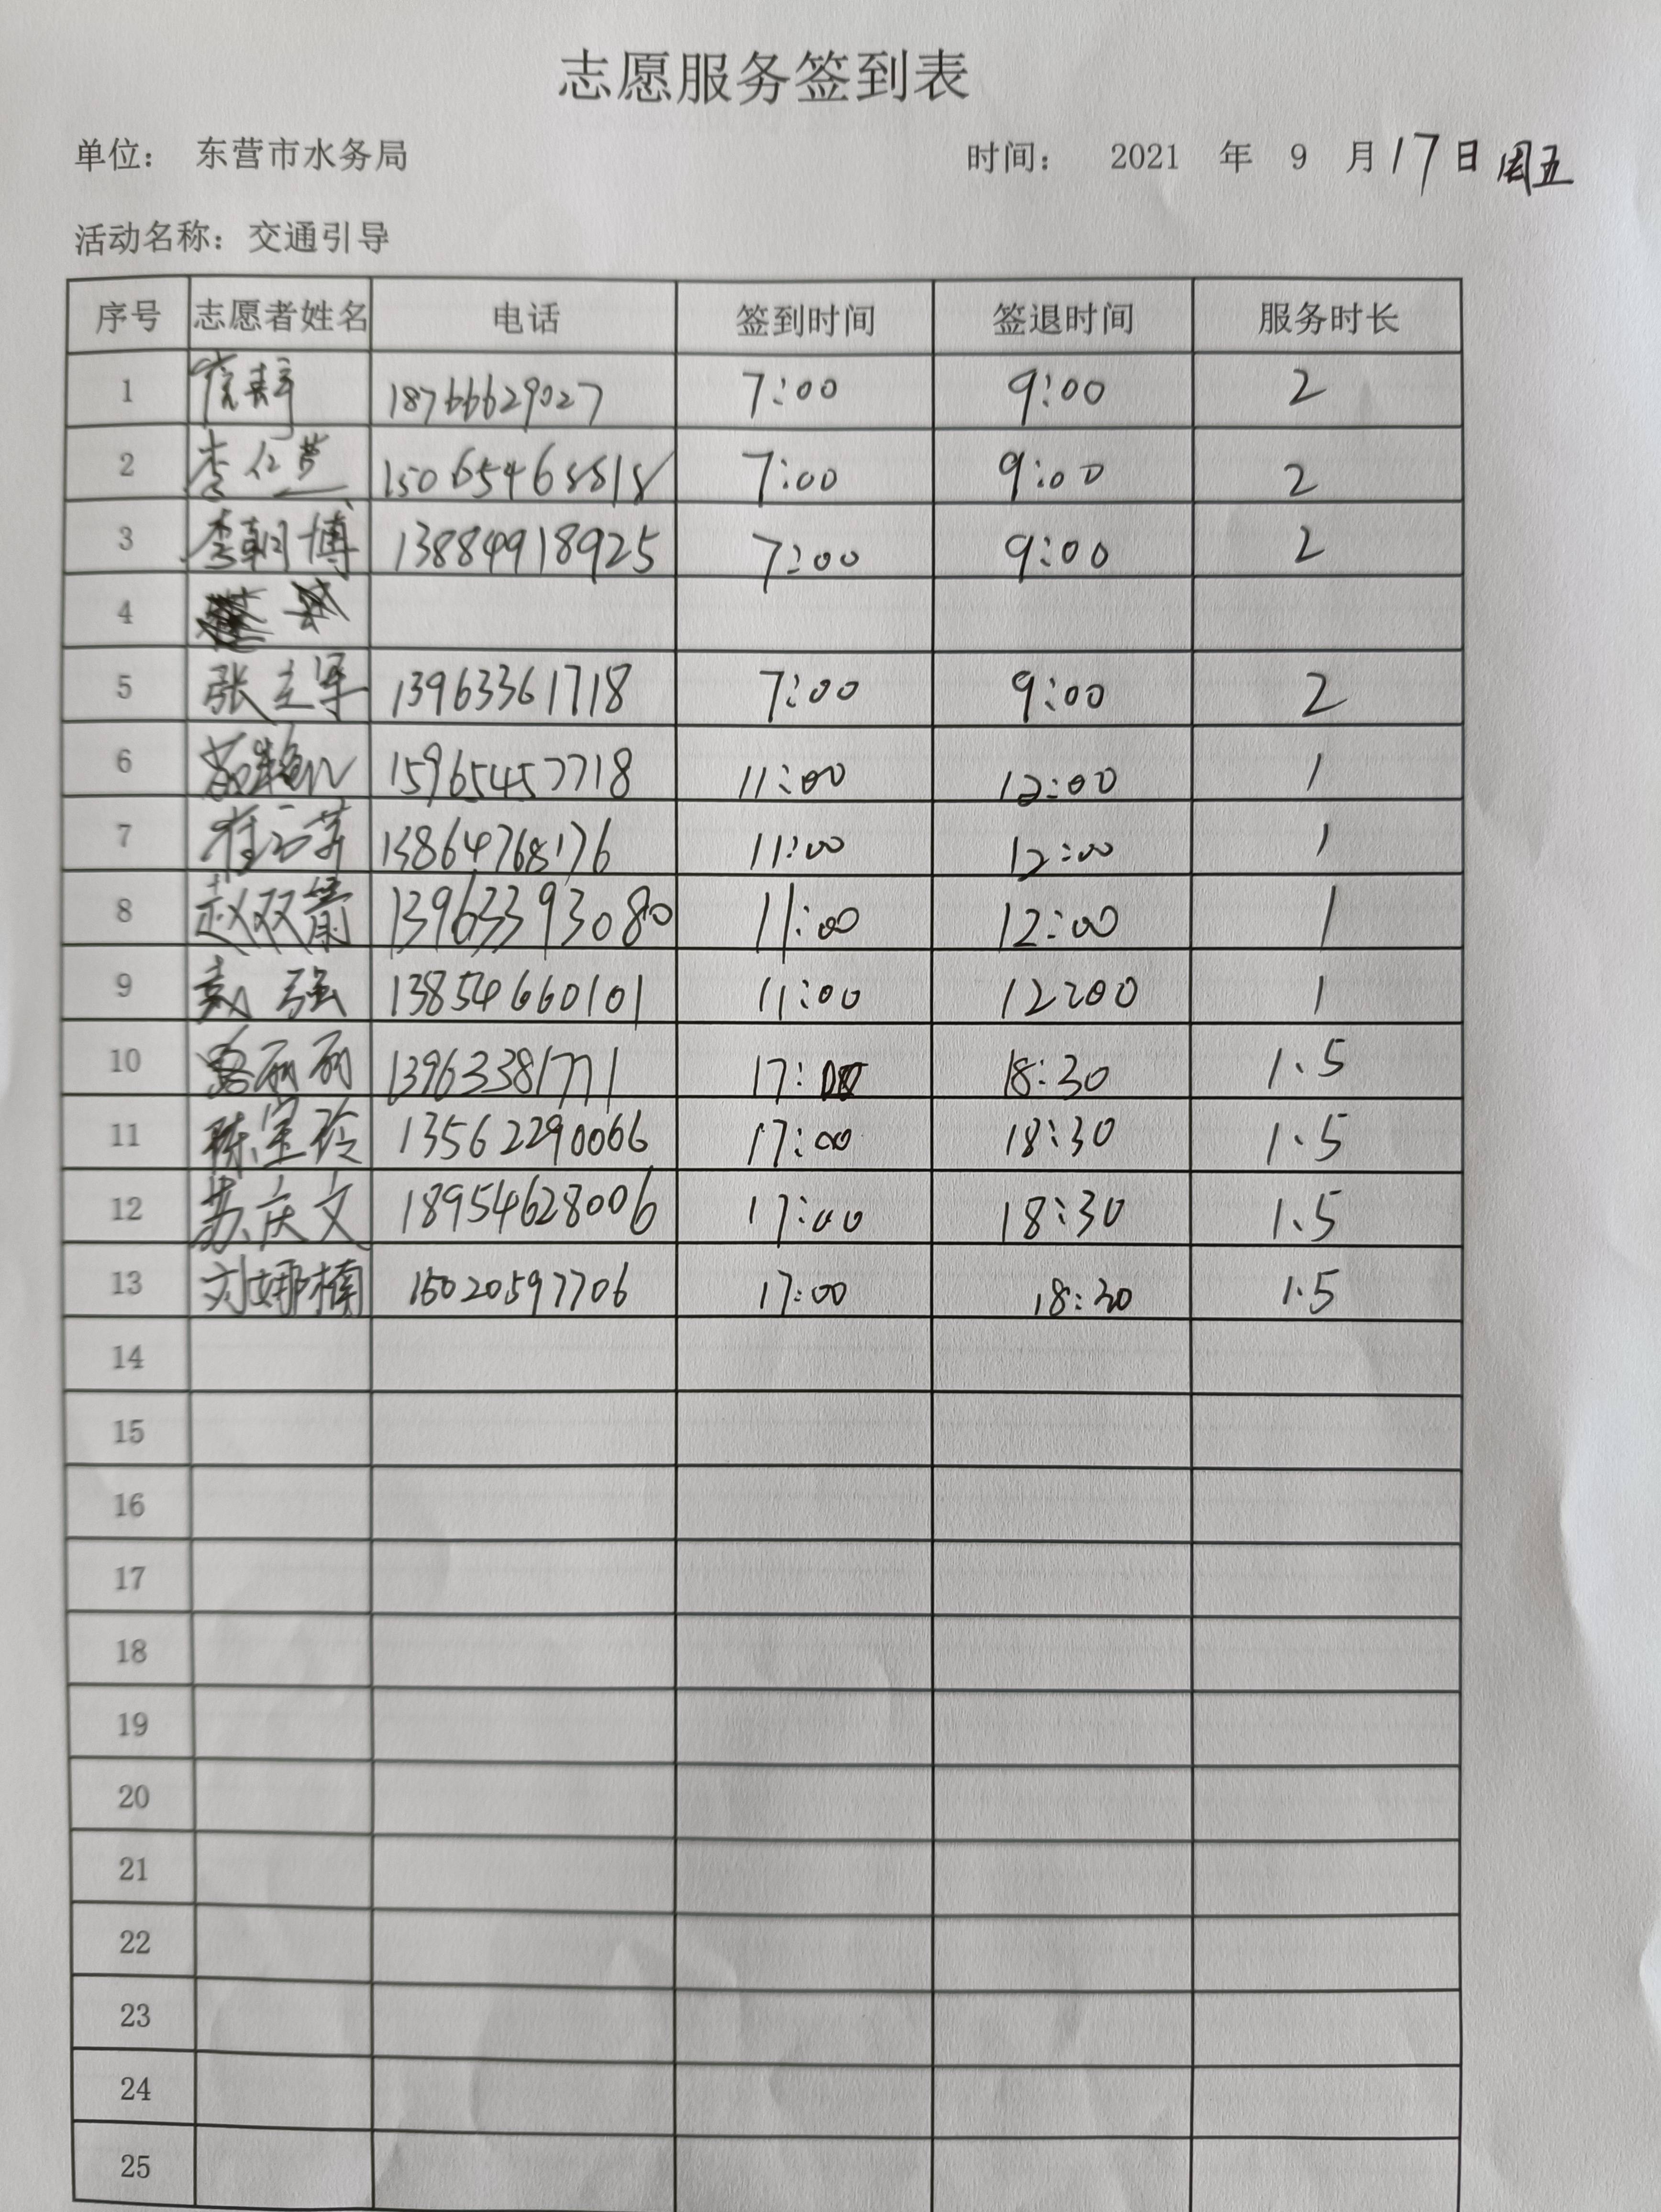 志愿服务签到表
单位： 东营市水务局 时间： 2021 年 9 月 17 日 周五
活动名称：交通引导
序号 志愿者姓名 电话 签到时间 签退时间 服务时长
1 18766629027 7:00 9:00 2
2 李仁 15065468818 7:00 9:00 2
3 李朝博 13884918925 7:00 9:00 2
4
5 张立军 13963361718 7:00 9:00 2
6 15965457718 11:00 12:00 1
7 13864768176 11:00 12:00 1
8 赵双 13963393080 11:00 12:00 1
9 强 13854660101 11:00 12:00 1
10 路丽丽 13963381771 17:00 18:30 1.5
11 陈宝玲 13562290066 17:00 18:30 1.5
12 苏庆文 18954628006 17:00 18:30 1.5
13 刘娜楠 15020597706 17:00 18:30 1.5
14
15
16
17
18
19
20
21
22
23
24
25